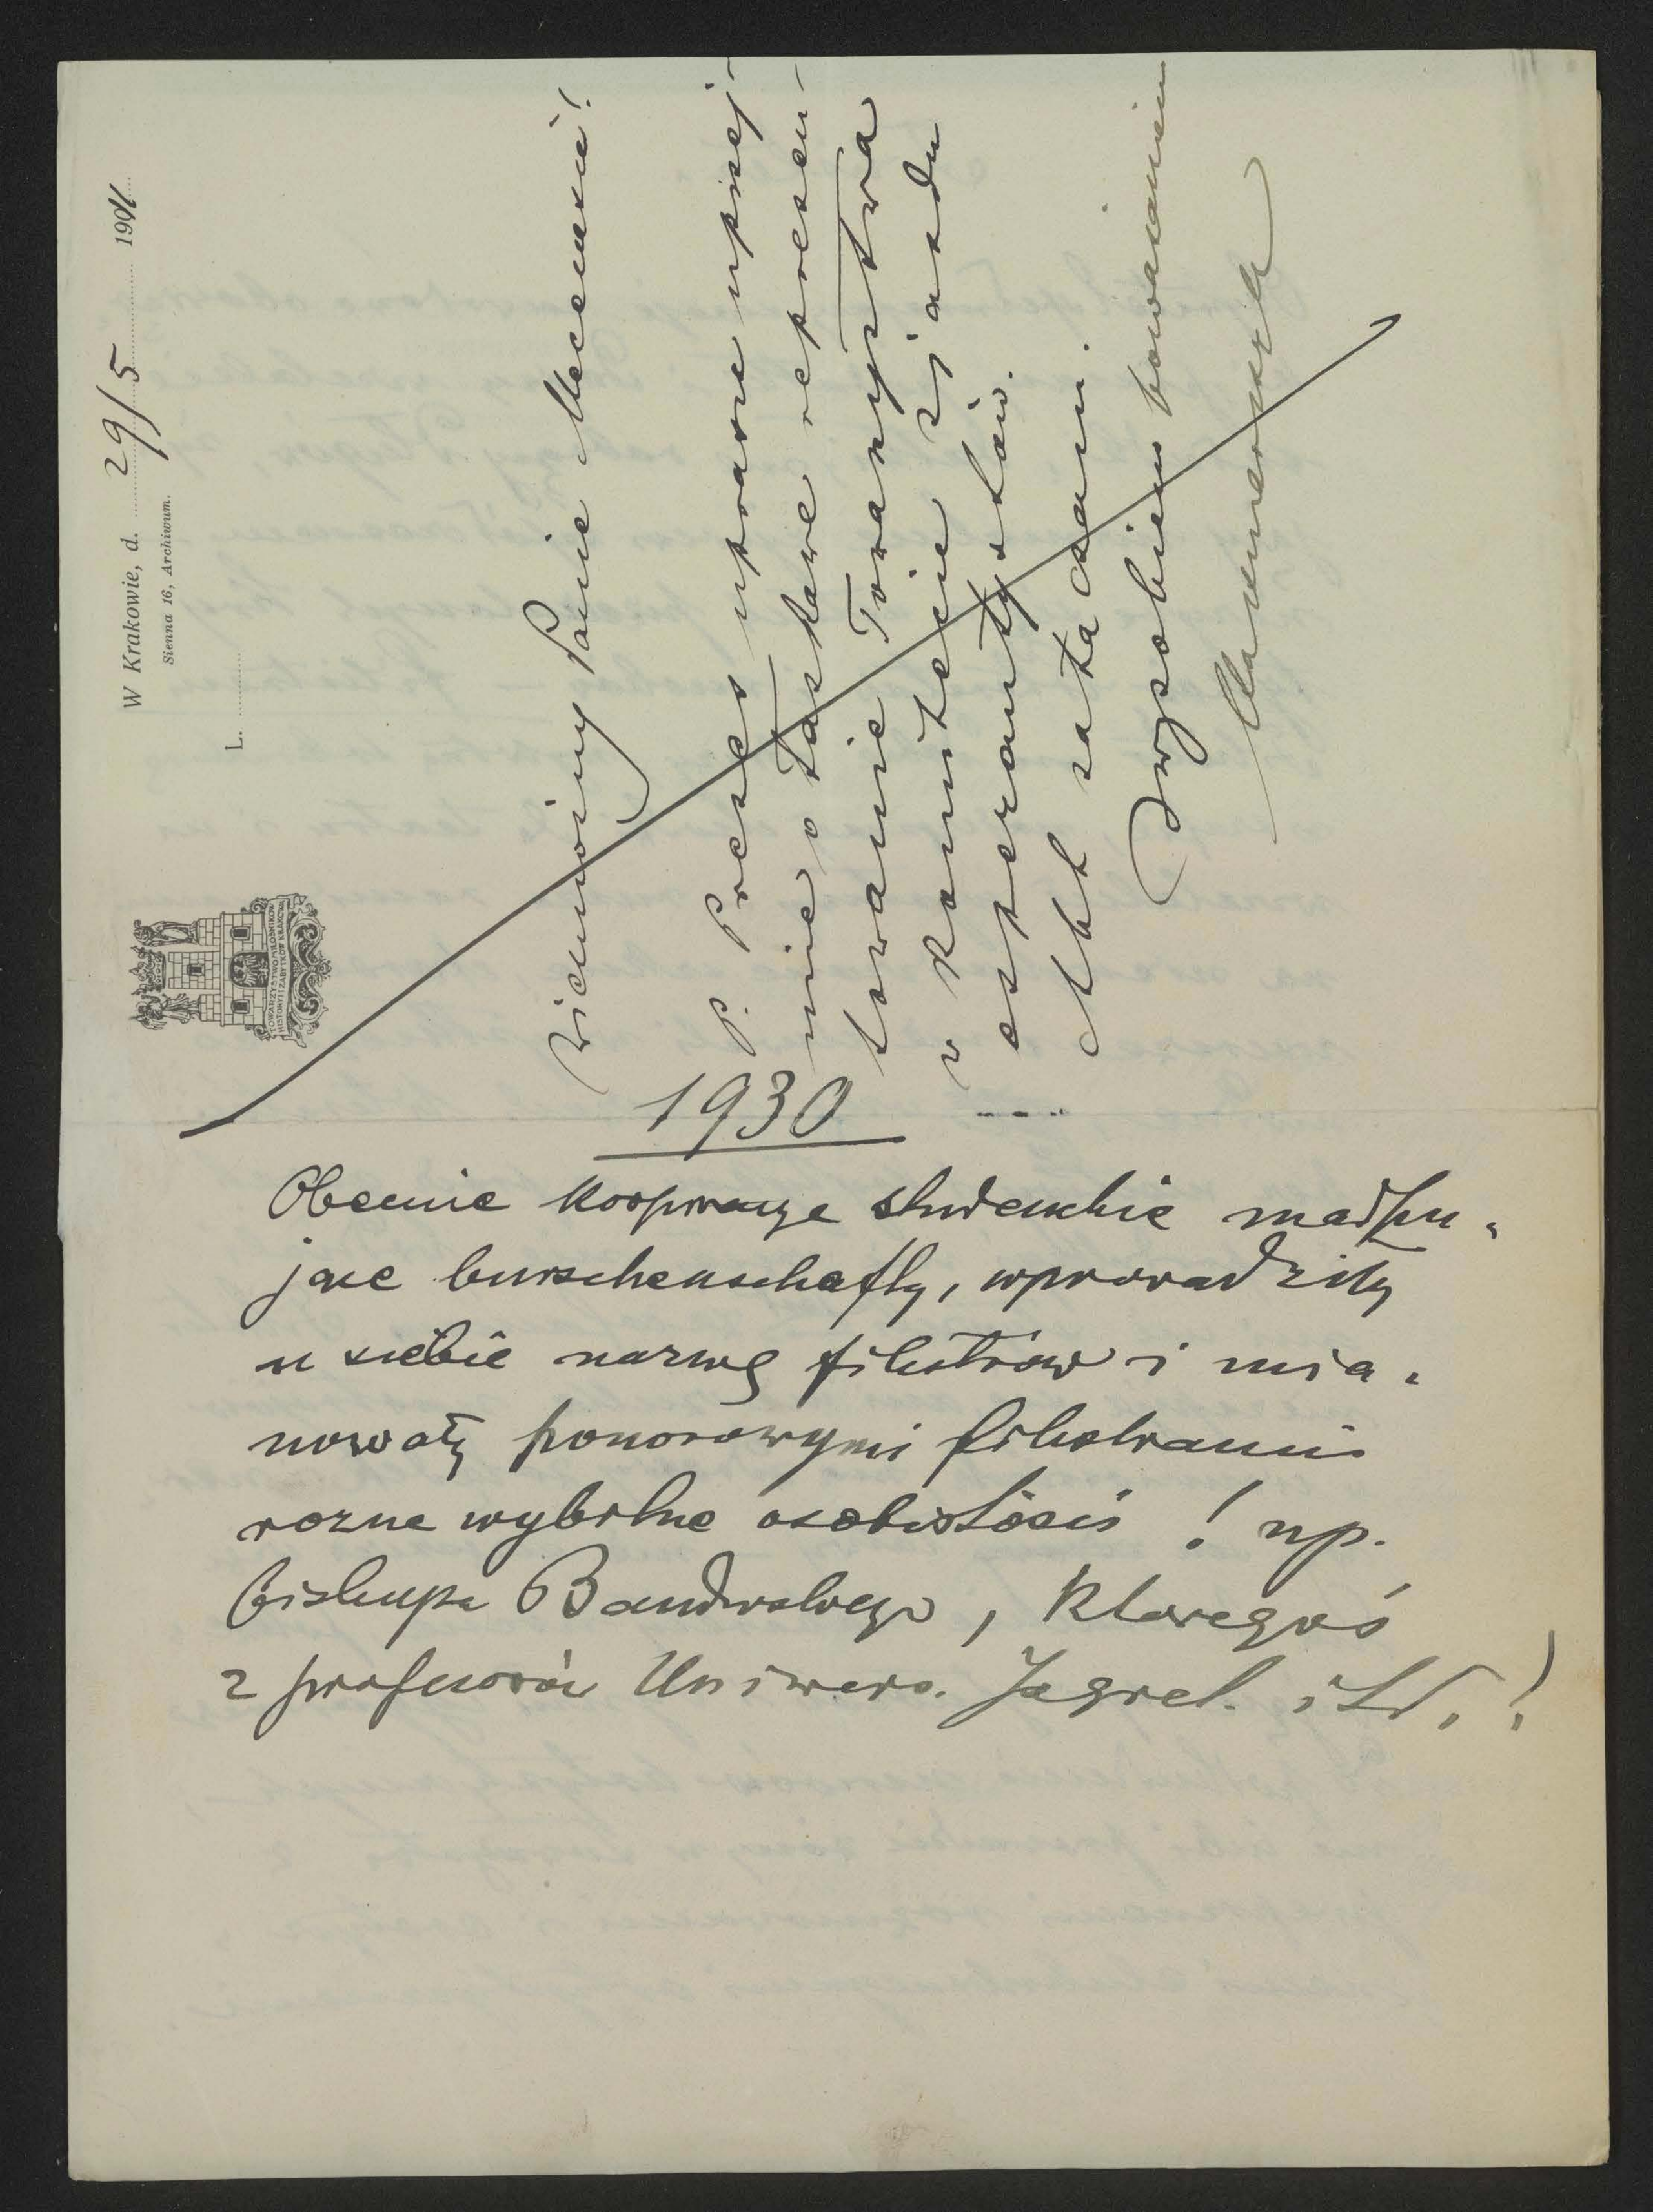 W Krakowie, d. 29/5 1901
Sienna 16, Archiwum.
L.
TOWARZYSTWO MIŁOŚNIKÓW
HISTORYI I ZABYTKÓW KRAKOWA
Wielmożny Panie Mecenasie!
P. Prezes uprasza uprzej-
mie o łaskawe reprezen-
towanie Towarzystwa
w Komitecie zjazdu
esperantystów.
Akt załączam.
Z wysokiem poważaniem
1930
Obecnie korporacye studenckie małpu-
jące burschenschafty, wprowadziły
u siebie nazwę filistrów i mia-
nowały honorowymi filistrami
rożne wybitne osobistości! np.
biskupa Bandurskiego, któregoś
z profesorów Uniwers. Jagiel. itd.!